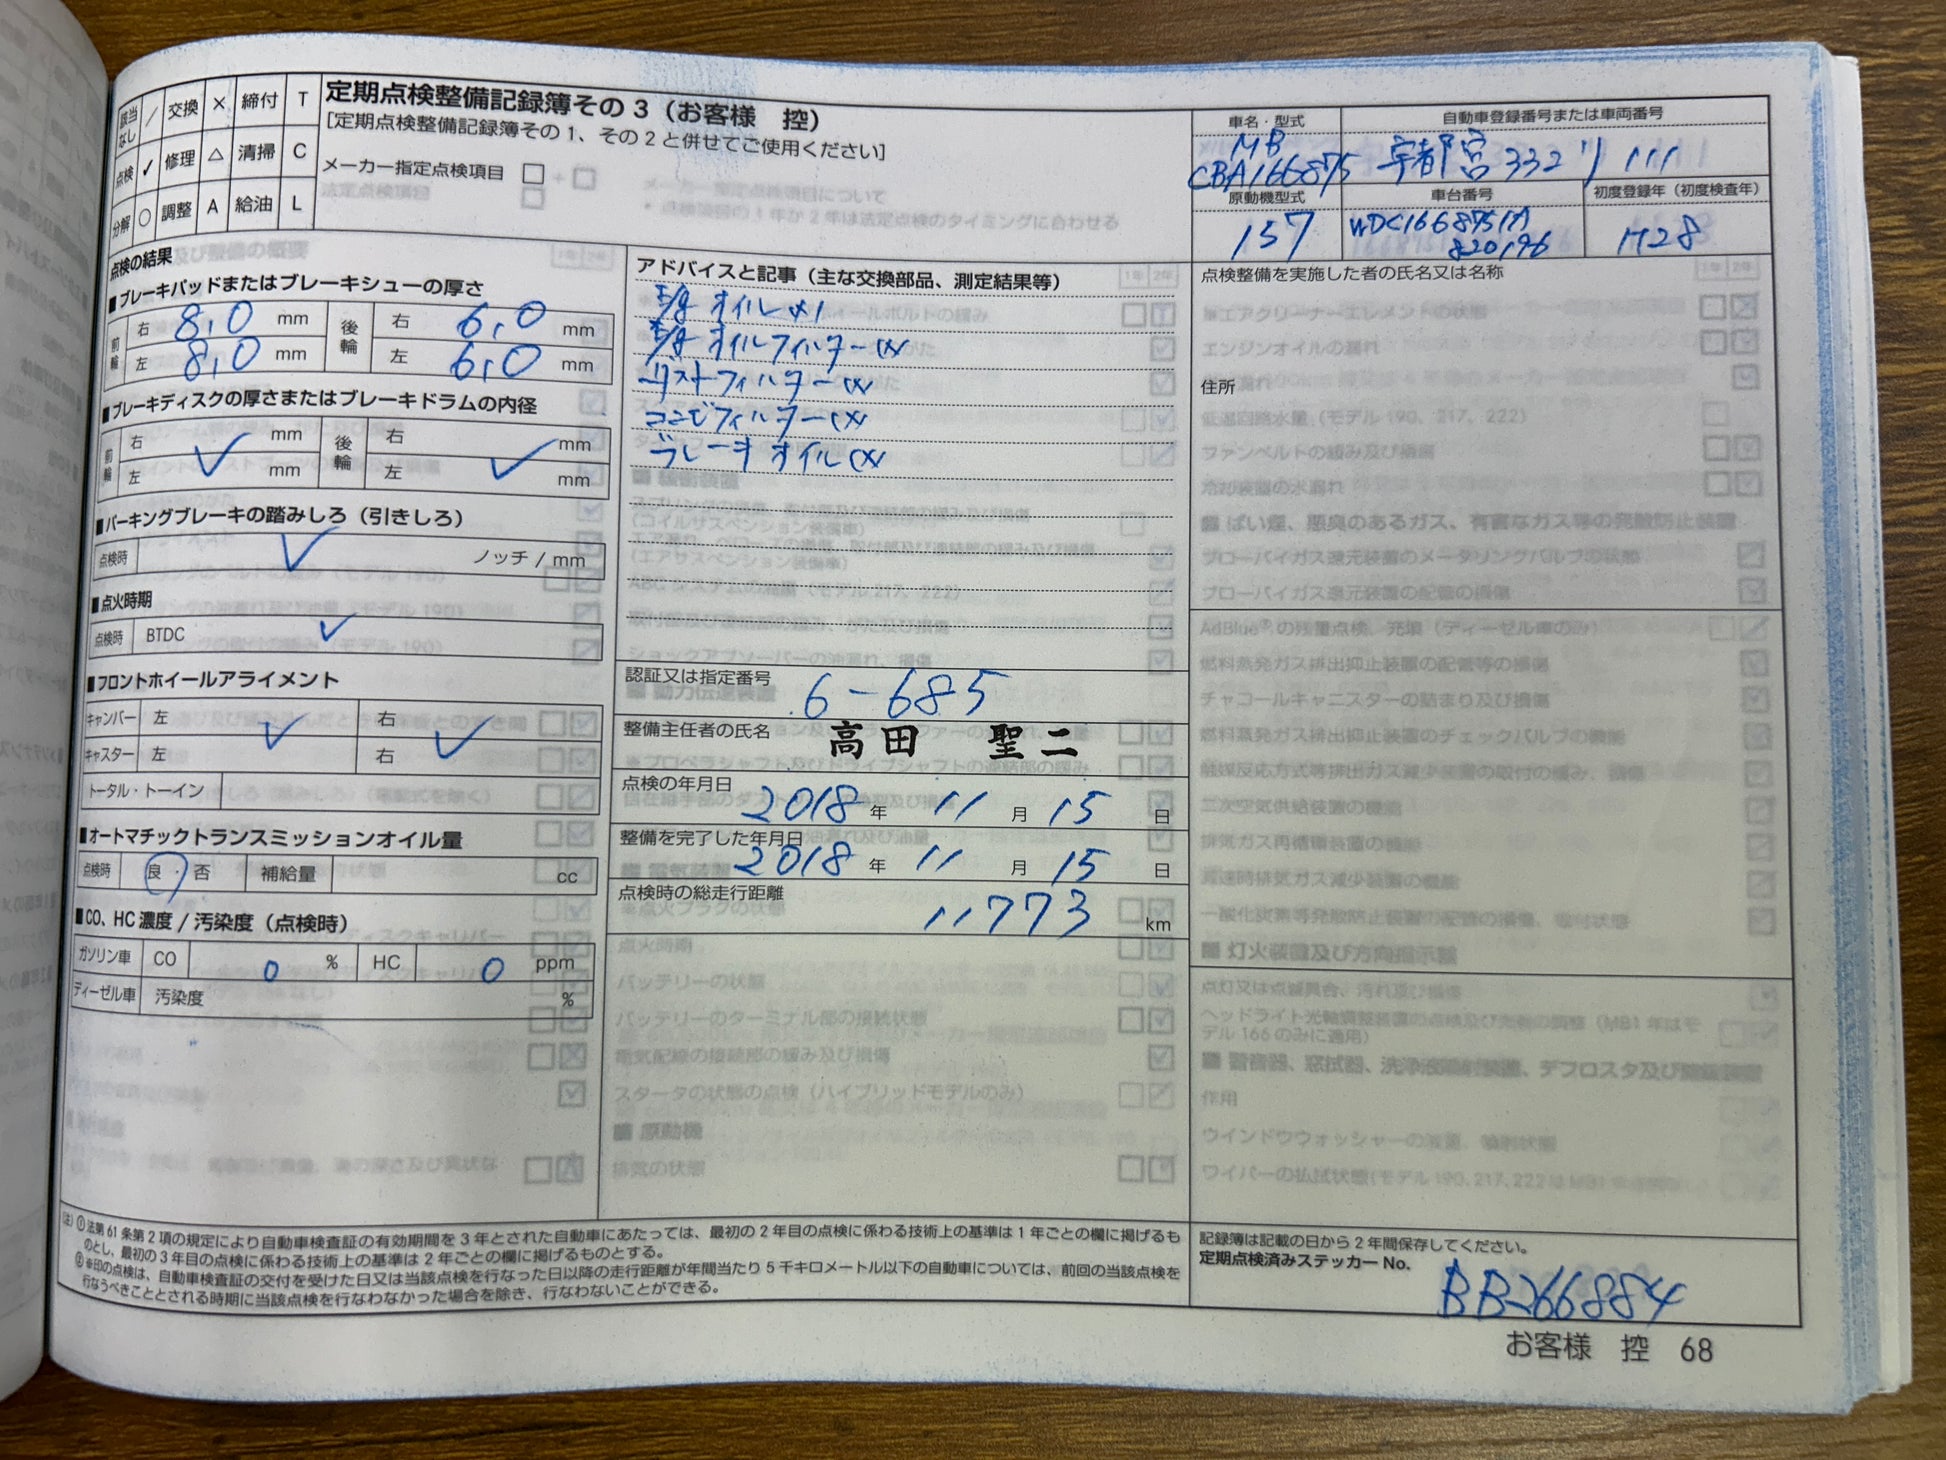 該当なし / 交換 × 締付 T
点検 ✓ 修理 △ 清掃 C
分解 ○ 調整 A 給油 L
定期点検整備記録簿その3（お客様 控）
［定期点検整備記録簿その1、その2と併せてご使用ください］
メーカー指定点検項目 □
車名・型式
MB
CBA166875
自動車登録番号または車両番号
宇都宮 332 リ 111
原動機型式
157
車台番号
WDC1668751A
820196
初度登録年（初度検査年）
H28
点検の結果
■ブレーキパッドまたはブレーキシューの厚さ
前輪 右 8,0 mm 後輪 右 6,0 mm
左 8,0 mm 左 6,0 mm
■ブレーキディスクの厚さまたはブレーキドラムの内径
前輪 右 mm 後輪 右 mm
左 ✓ mm 左 ✓ mm
■パーキングブレーキの踏みしろ（引きしろ）
点検時 ✓ ノッチ / mm
■点火時期
点検時 BTDC ✓
■フロントホイールアライメント
キャンバー 左 右
キャスター 左 ✓ 右 ✓
トータル・トーイン
■オートマチックトランスミッションオイル量
点検時 良・否 補給量 cc
■CO、HC濃度 / 汚染度（点検時）
ガソリン車 CO 0 % HC 0 ppm
ディーゼル車 汚染度 %
アドバイスと記事（主な交換部品、測定結果等）
オイル
オイルフィルター
ダストフィルター
コンビフィルター
ブレーキオイル
認証又は指定番号 6-685
整備主任者の氏名 高田 聖二
点検の年月日 2018 年 11 月 15 日
整備を完了した年月日 2018 年 11 月 15 日
点検時の総走行距離 11773 km
点検整備を実施した者の氏名又は名称
住所
(注) ①法第61条第2項の規定により自動車検査証の有効期間を3年とされた自動車にあたっては、最初の2年目の点検に係わる技術上の基準は1年ごとの欄に掲げるも
のとし、最初の3年目の点検に係わる技術上の基準は2年ごとの欄に掲げるものとする。
②※印の点検は、自動車検査証の交付を受けた日又は当該点検を行なった日以降の走行距離が年間当たり5千キロメートル以下の自動車については、前回の当該点検を
行なうべきこととされる時期に当該点検を行なわなかった場合を除き、行なわないことができる。
記録簿は記載の日から2年間保存してください。
定期点検済みステッカー No.
BB266884
お客様 控 68